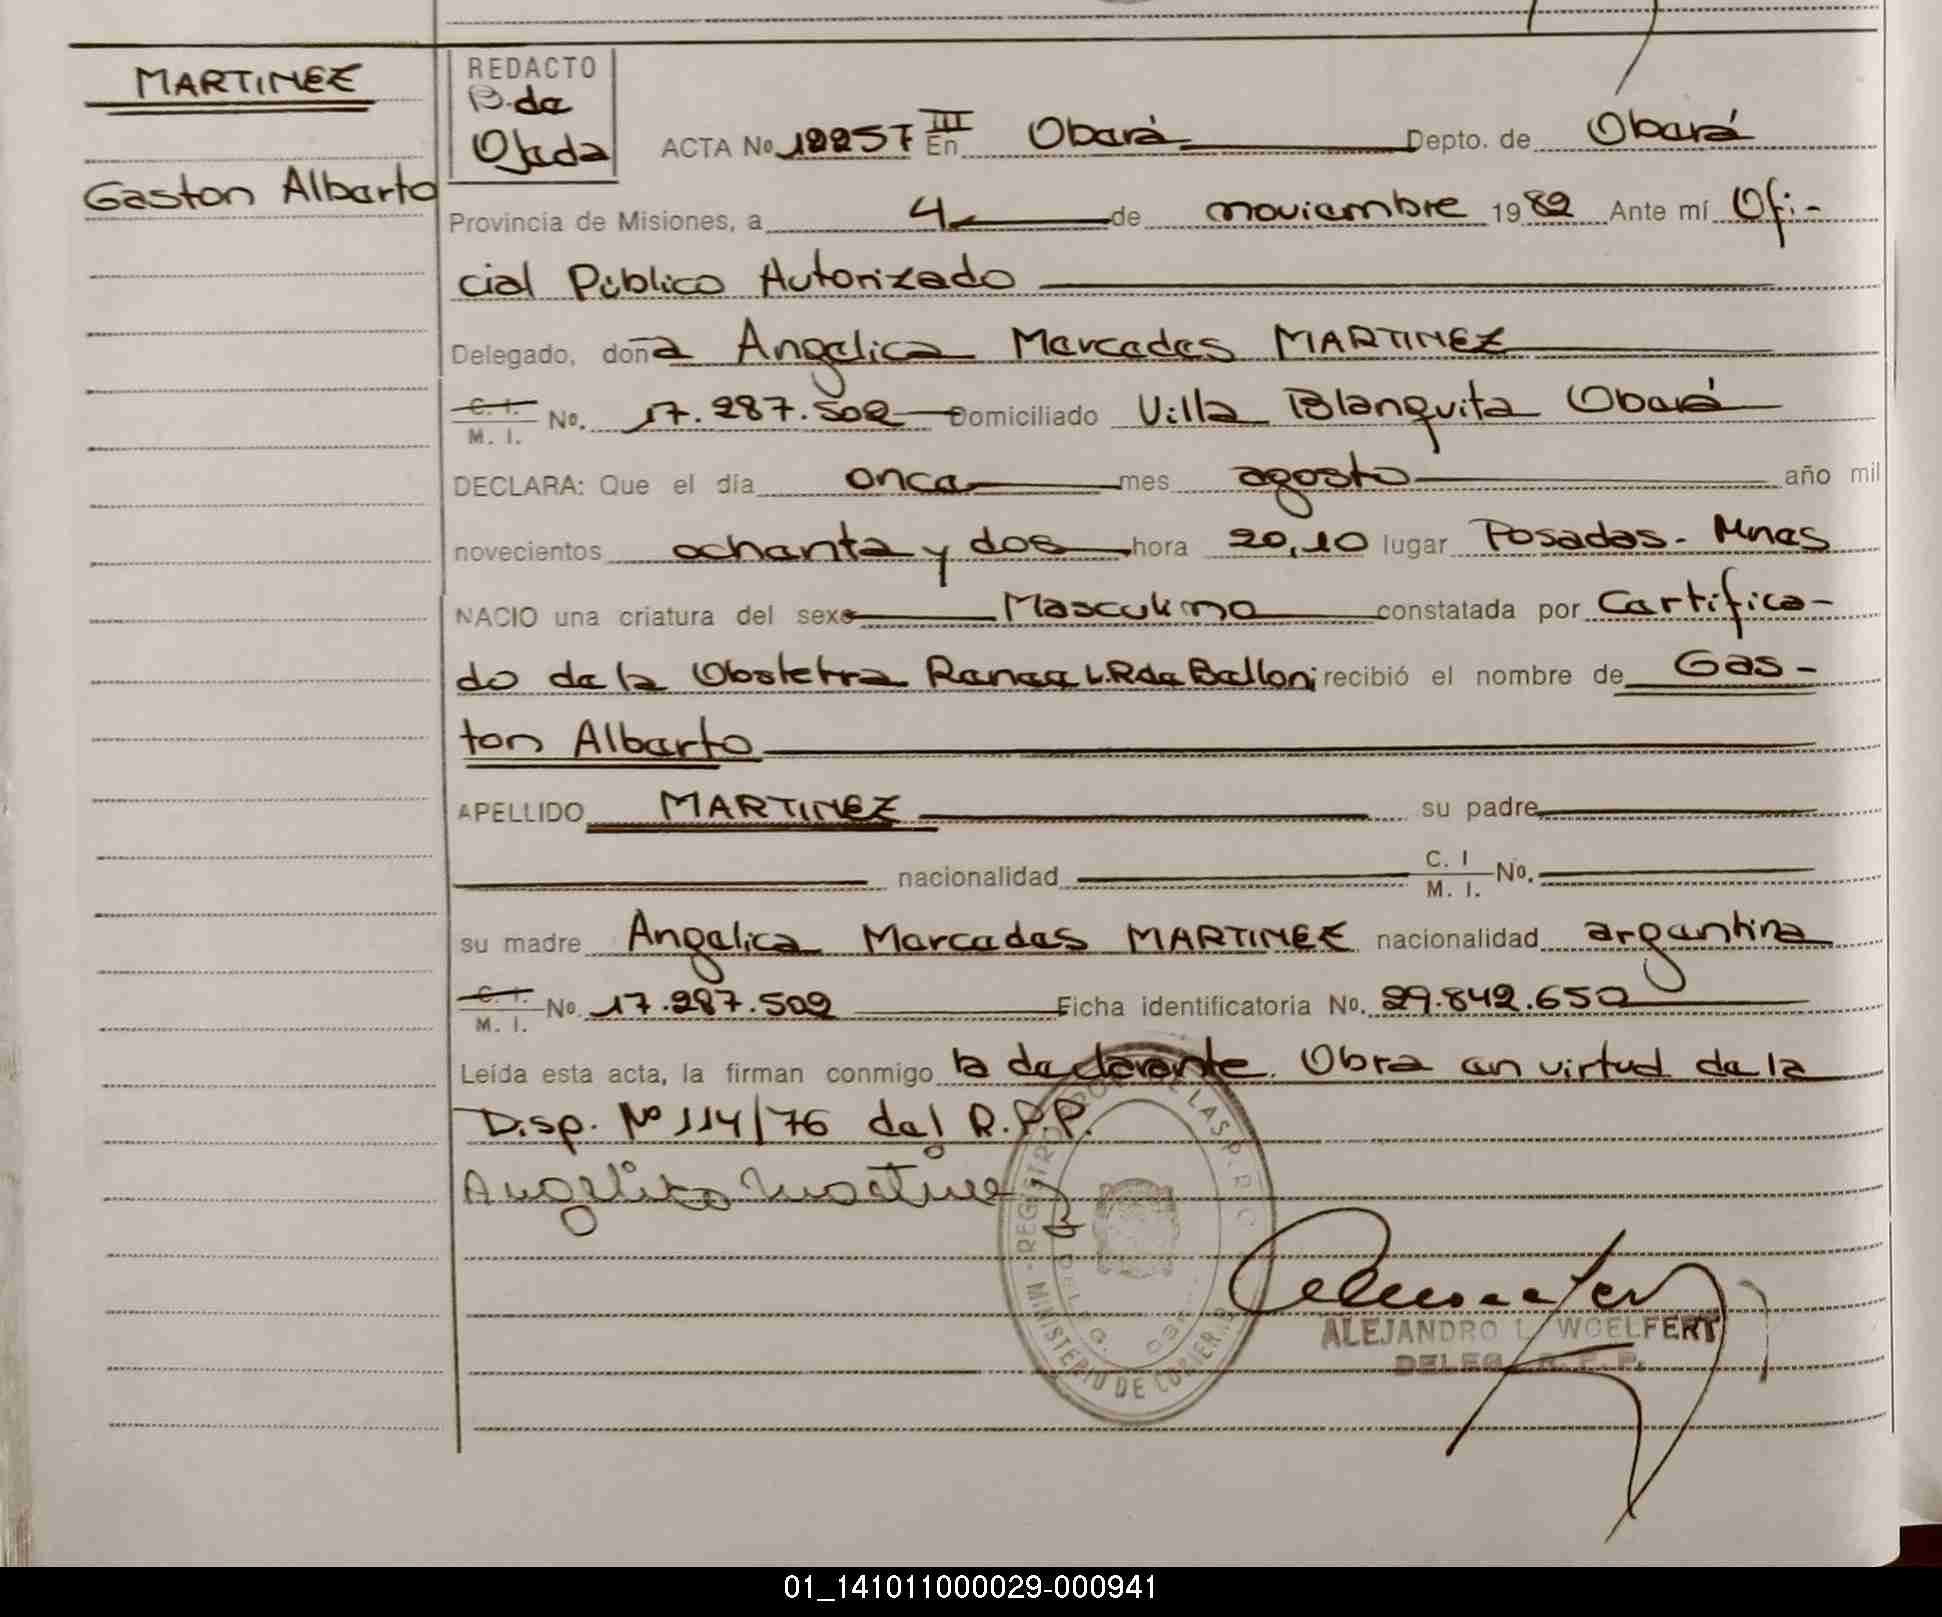 MARTINEZ
Gaston Alberto
REDACTO
B. de
Ojeda
ACTA No 12257 III En Oberá Depto. de Oberá
Provincia de Misiones, a 4 de noviembre 1982 Ante mí Ofi-
cial Público Autorizado
Delegado, doña Angelica Mercedes MARTINEZ
C. I. M. I. No. 17.287.502 Domiciliado Villa Blanquita Oberá
DECLARA: Que el día once mes agosto año mil
novecientos ochenta y dos hora 20,10 lugar Posadas - Mnes
NACIO una criatura del sexo Masculino constatada por Certifica-
do de la Obstetra Renee L.R de Belloni recibió el nombre de Gas-
ton Alberto
APELLIDO MARTINEZ su padre
nacionalidad C. I M. I. No.
su madre Angelica Mercedes MARTINEZ nacionalidad argentina
C. I. M. I. No. 17.287.502 Ficha identificatoria No. 29.842.650
Leída esta acta, la firman conmigo la declarante. Obra en virtud de la
Disp. Nº 114/76 del R.P.P.
Angelica Martinez
REGISTRO PROV. DE LAS P.
MINISTERIO DE GOBIERNO
DELEG.
ALEJANDRO L. WOELFERT
DELEG. R. C. P.
01_141011000029-000941